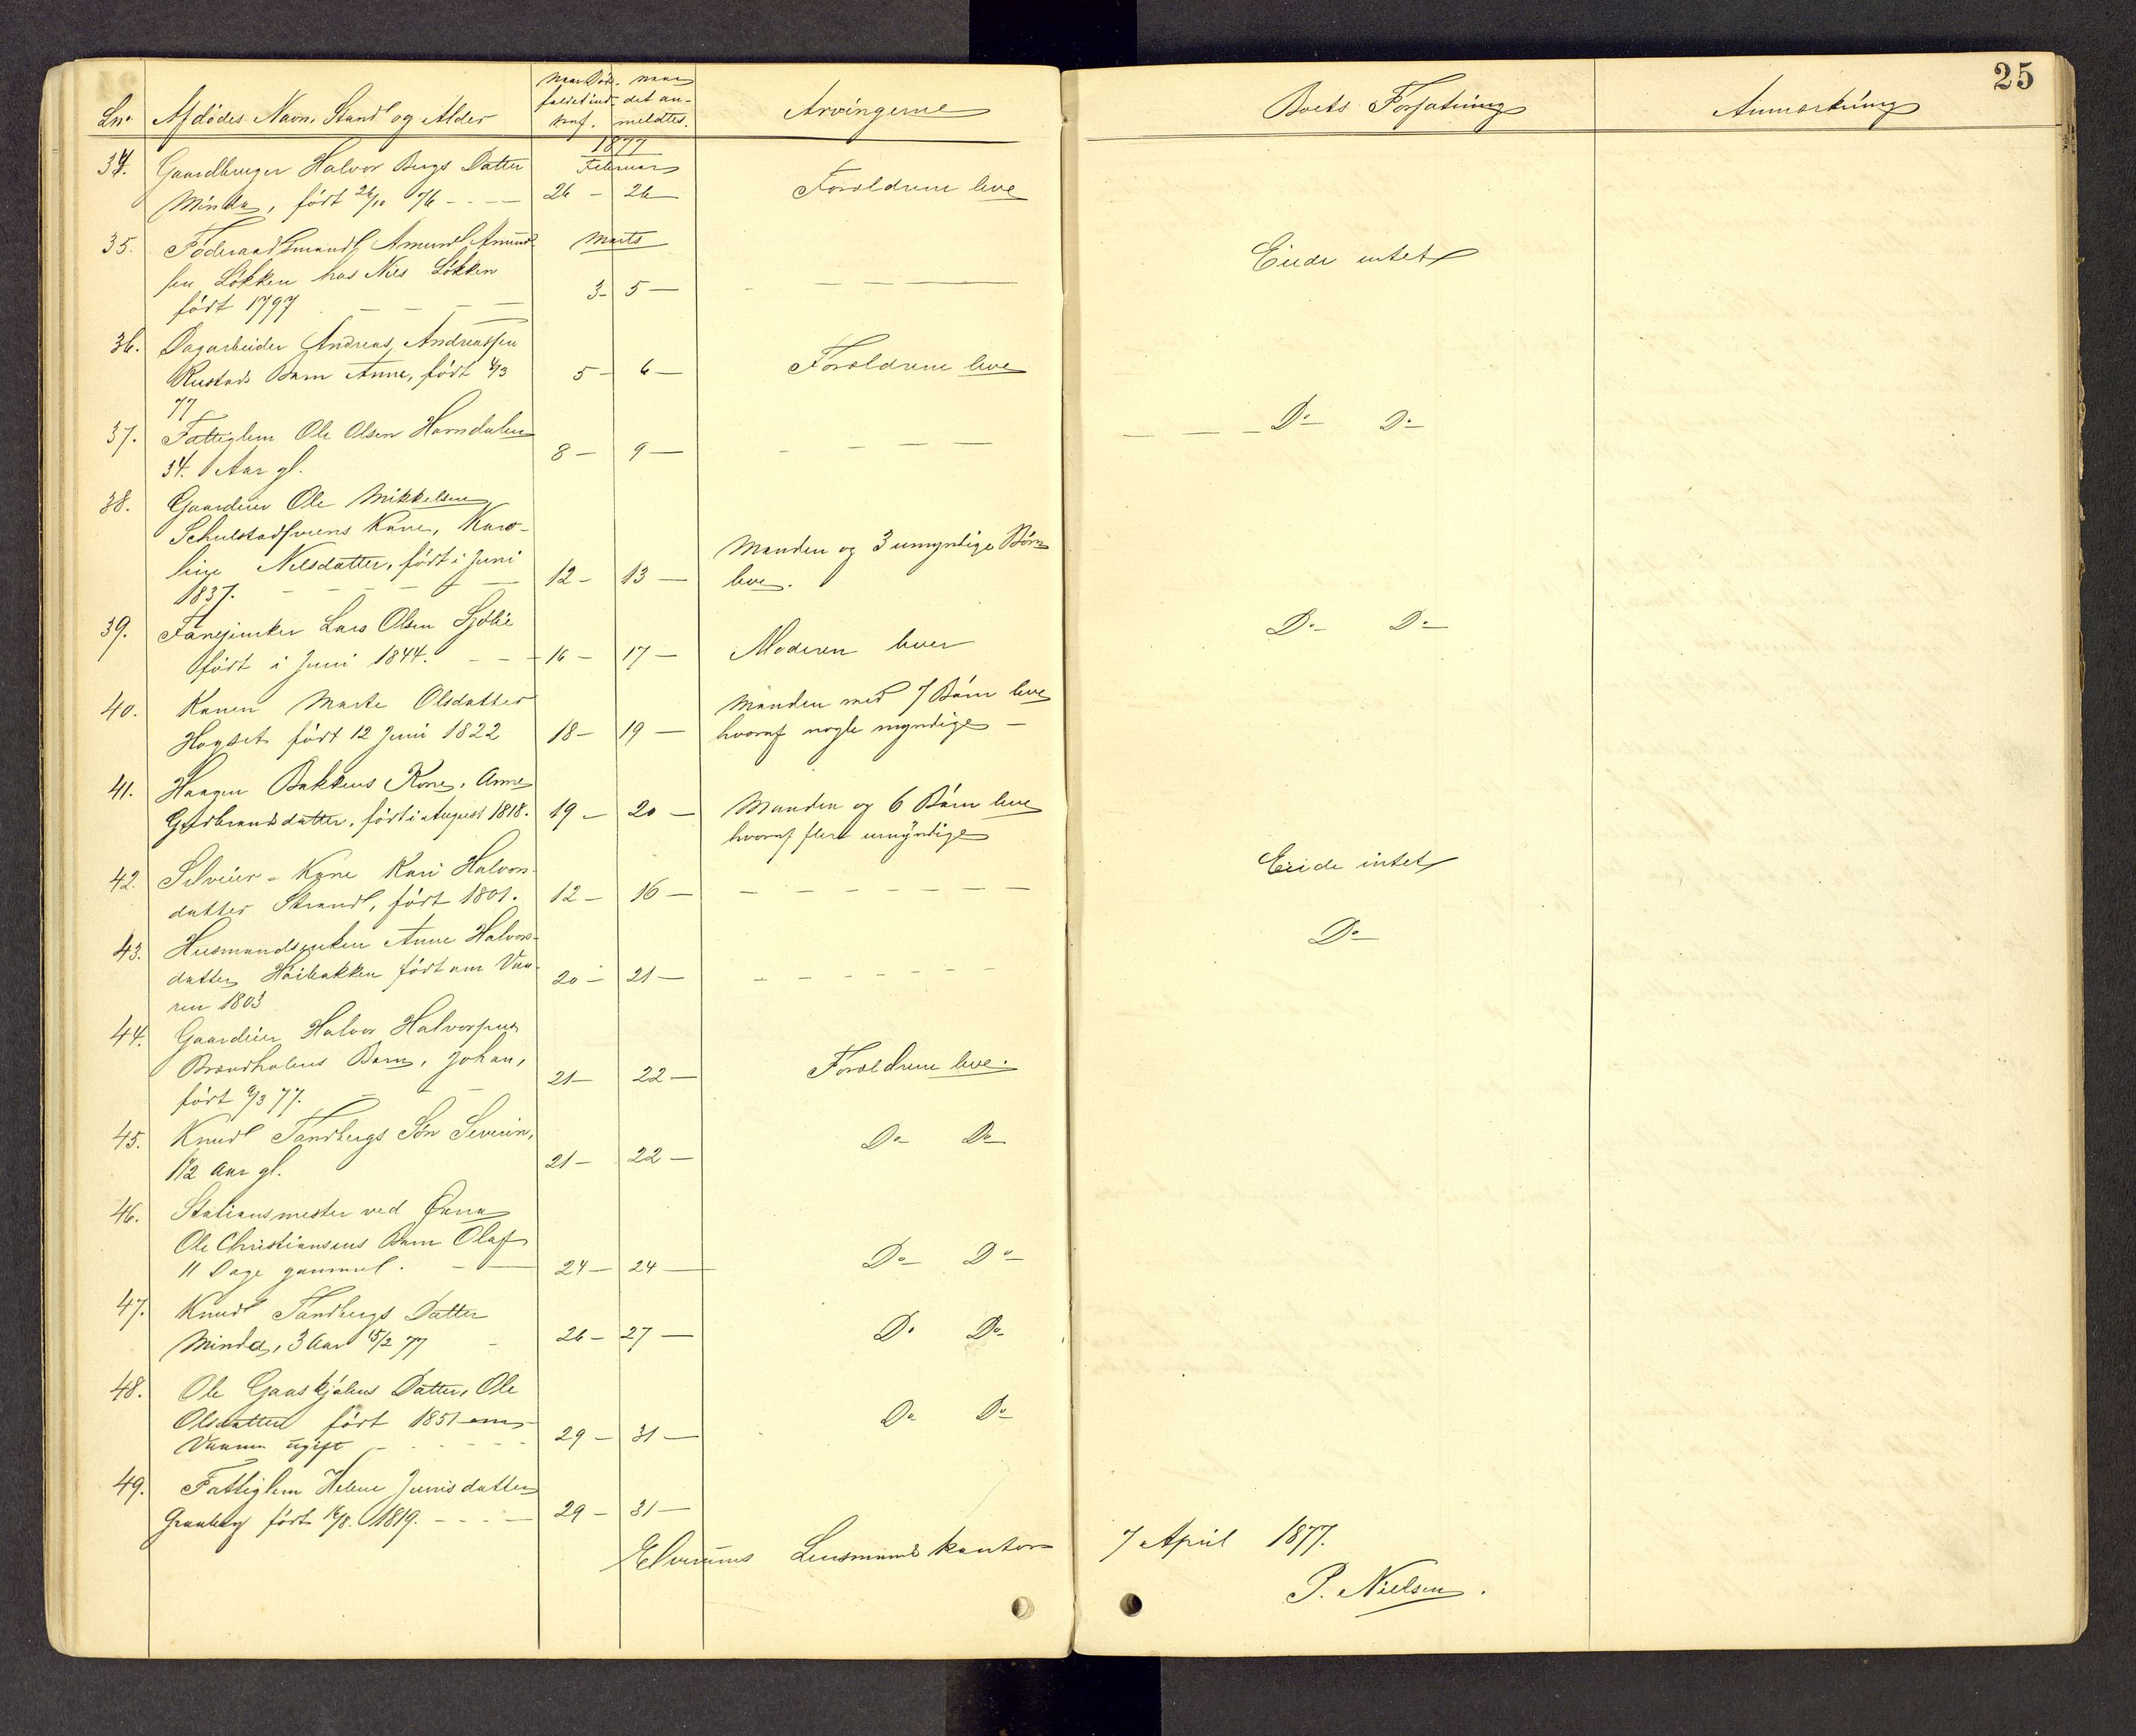 25
Lnr Afdødes Navn, Stand og Alder
Naar Døds-
faldet ind-
traf.
naar
det an-
meldtes.
Arvingerne
Boets Forfatning
Anmærkning
1877
Februar
34. Gaardbruger Halvor Bergs Datter
Minda, født 26/10 76 26 - 26 Forældrene leve
Marts
35. Føderaadsmand Amund Amund-
sen Løkken hos Nils Løkken
født 1797 3 - 5 - Eiede intet
36. Dagarbeider Andreas Andreassen
Rustads Barn Anne, født 4/3
77 5 - 6 - Forældrene leve
37. Fattiglem Ole Olsen Horndalen
34 Aar gl. 8 - 9 - Do Do
38. Gaardeier Ole Mikkelsen
Schulstadsveens Kone, Karo-
line Nilsdatter, født i Juni
1837. 12 - 13 - Manden og 3 umyndige Børn
leve.
39. Lars Olsen Sjølie
født i Juni 1844. 16 - 17 - Moderen lever Do Do
40. Konen Marte Olsdatter
Hagset født 12 Juni 1822 18 - 19 - Manden med 7 Børn leve
hvoraf nogle myndige -
41. Haagen Bakkens Kone, Anne
Gudbrandsdatter, født i August 1818. 19 - 20 - Manden og 6 Børn leve
hvoraf flere umyndige
42. Selveier-Kone Kari Halvors-
datter Strand, født 1801. 12 - 16 - Eiede intet
43. Husmandsenken Anne Halvors-
datter Haibakken født om Vaa-
ren 1803 20 - 21 - Do
44. Gaardeier Halvor Halvorsens
Brændholens Barn, Johan,
født 9/3 77. 21 - 22 - Forældrene leve.
45. Knud Sandbergs Søn Severin,
1½ Aar gl. 21 - 22 - Do Do
46. Stationsmester ved Øxna
Ole Christiansens Barn Olaf
11 Dage gammel. 24 - 24 - Do Do
47. Knud Sandbergs Datter
Minda, 3 Aar 15/2 77 26 - 27 - Do Do
48. Ole Gaaskjølens Datter, Ole
Olsdatter født 1851 om
Vaaren ugift 29 - 31 - Do Do
49. Fattiglem Helene Jensdatter
Granberg født 16/8. 1819. 29 - 31 -
Elverums Lensmandskontor 7 April 1877.
P. Nielsen.